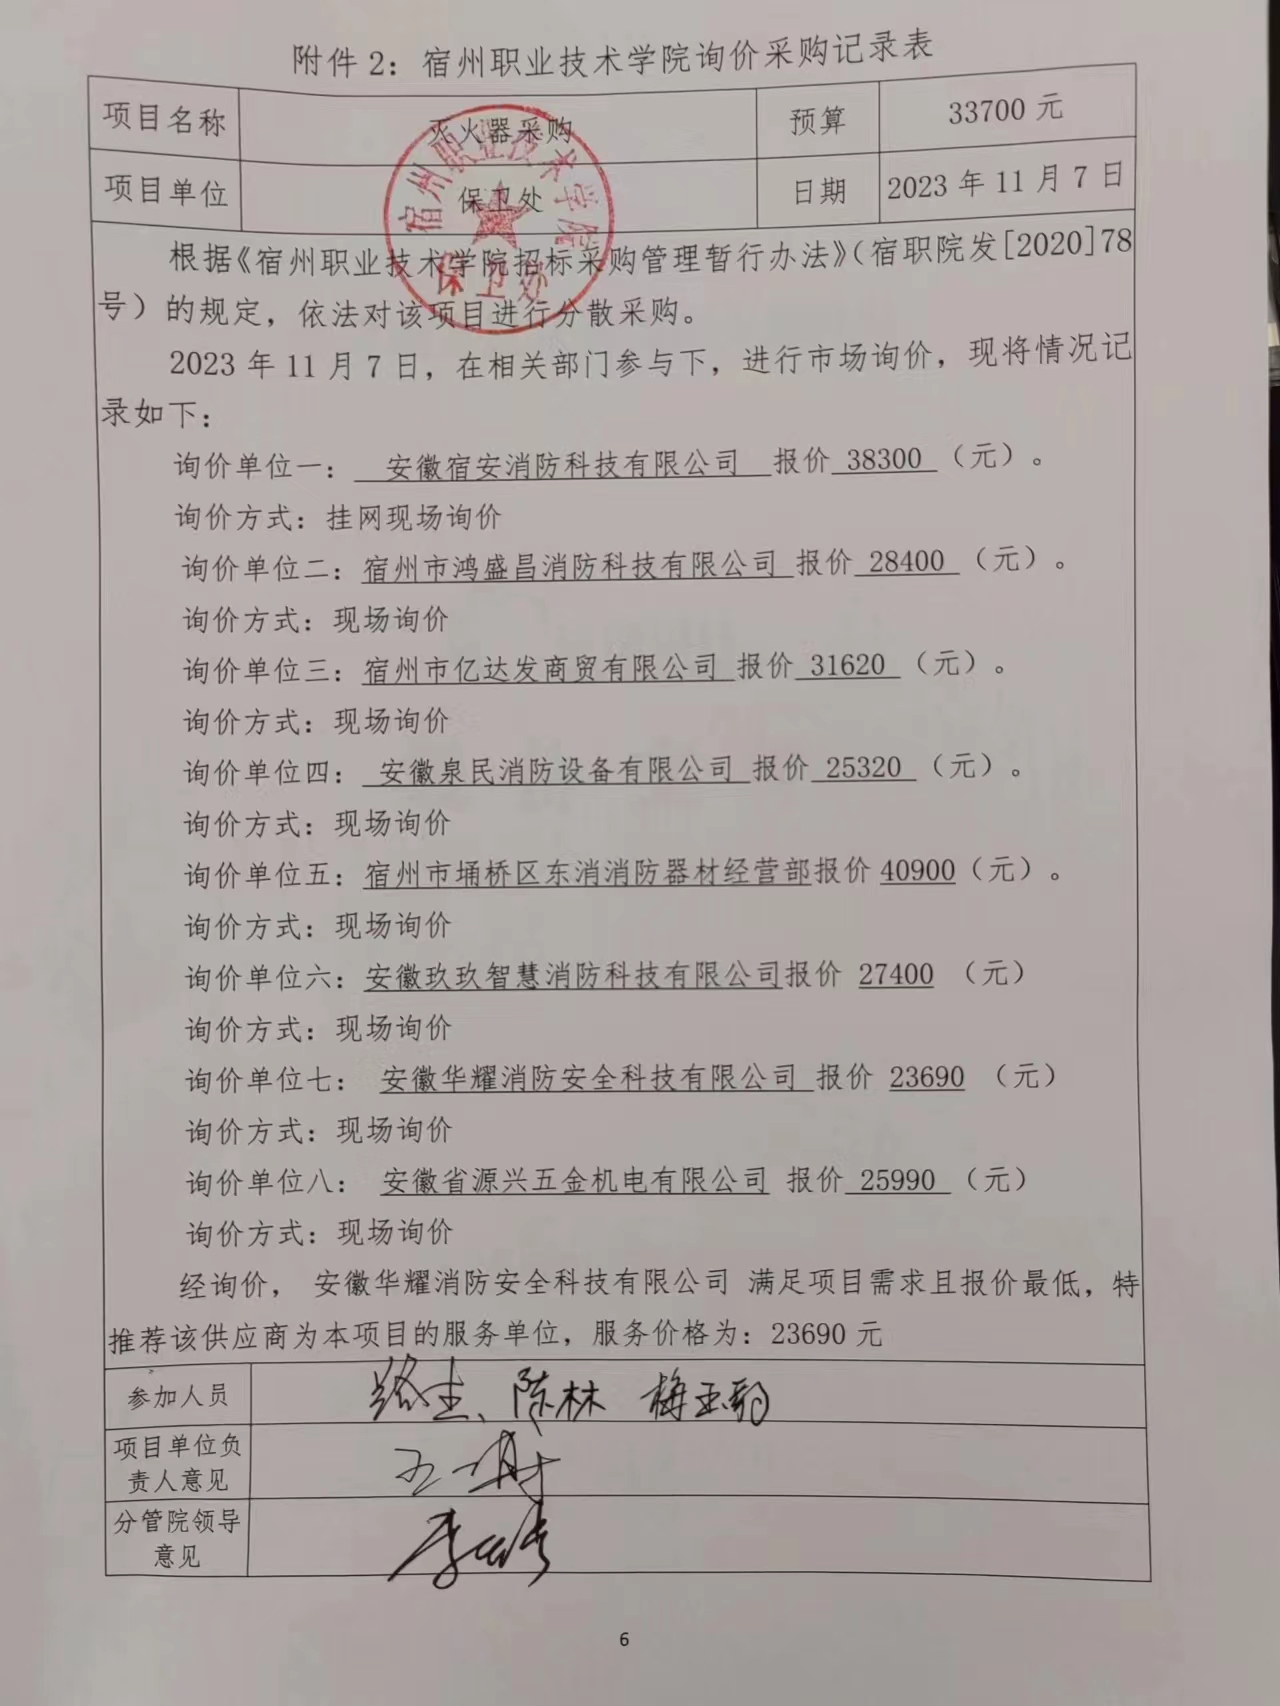 附件2：宿州职业技术学院询价采购记录表
项目名称 灭火器采购 预算 33700 元
项目单位 保卫处 日期 2023 年 11 月 7 日
宿州职业技术学院
保卫处
根据《宿州职业技术学院招标采购管理暂行办法》（宿职院发[2020]78
号）的规定，依法对该项目进行分散采购。
2023 年 11 月 7 日，在相关部门参与下，进行市场询价，现将情况记
录如下：
询价单位一： 安徽宿安消防科技有限公司 报价 38300 （元）。
询价方式：挂网现场询价
询价单位二：宿州市鸿盛昌消防科技有限公司 报价 28400 （元）。
询价方式：现场询价
询价单位三：宿州市亿达发商贸有限公司 报价 31620 （元）。
询价方式：现场询价
询价单位四： 安徽泉民消防设备有限公司 报价 25320 （元）。
询价方式：现场询价
询价单位五：宿州市埇桥区东消消防器材经营部报价 40900（元）。
询价方式：现场询价
询价单位六：安徽玖玖智慧消防科技有限公司报价 27400 （元）
询价方式：现场询价
询价单位七： 安徽华耀消防安全科技有限公司 报价 23690 （元）
询价方式：现场询价
询价单位八： 安徽省源兴五金机电有限公司 报价 25990 （元）
询价方式：现场询价
经询价， 安徽华耀消防安全科技有限公司 满足项目需求且报价最低，特
推荐该供应商为本项目的服务单位，服务价格为：23690 元
参加人员 陈林
项目单位负
责人意见
分管院领导
意见
6